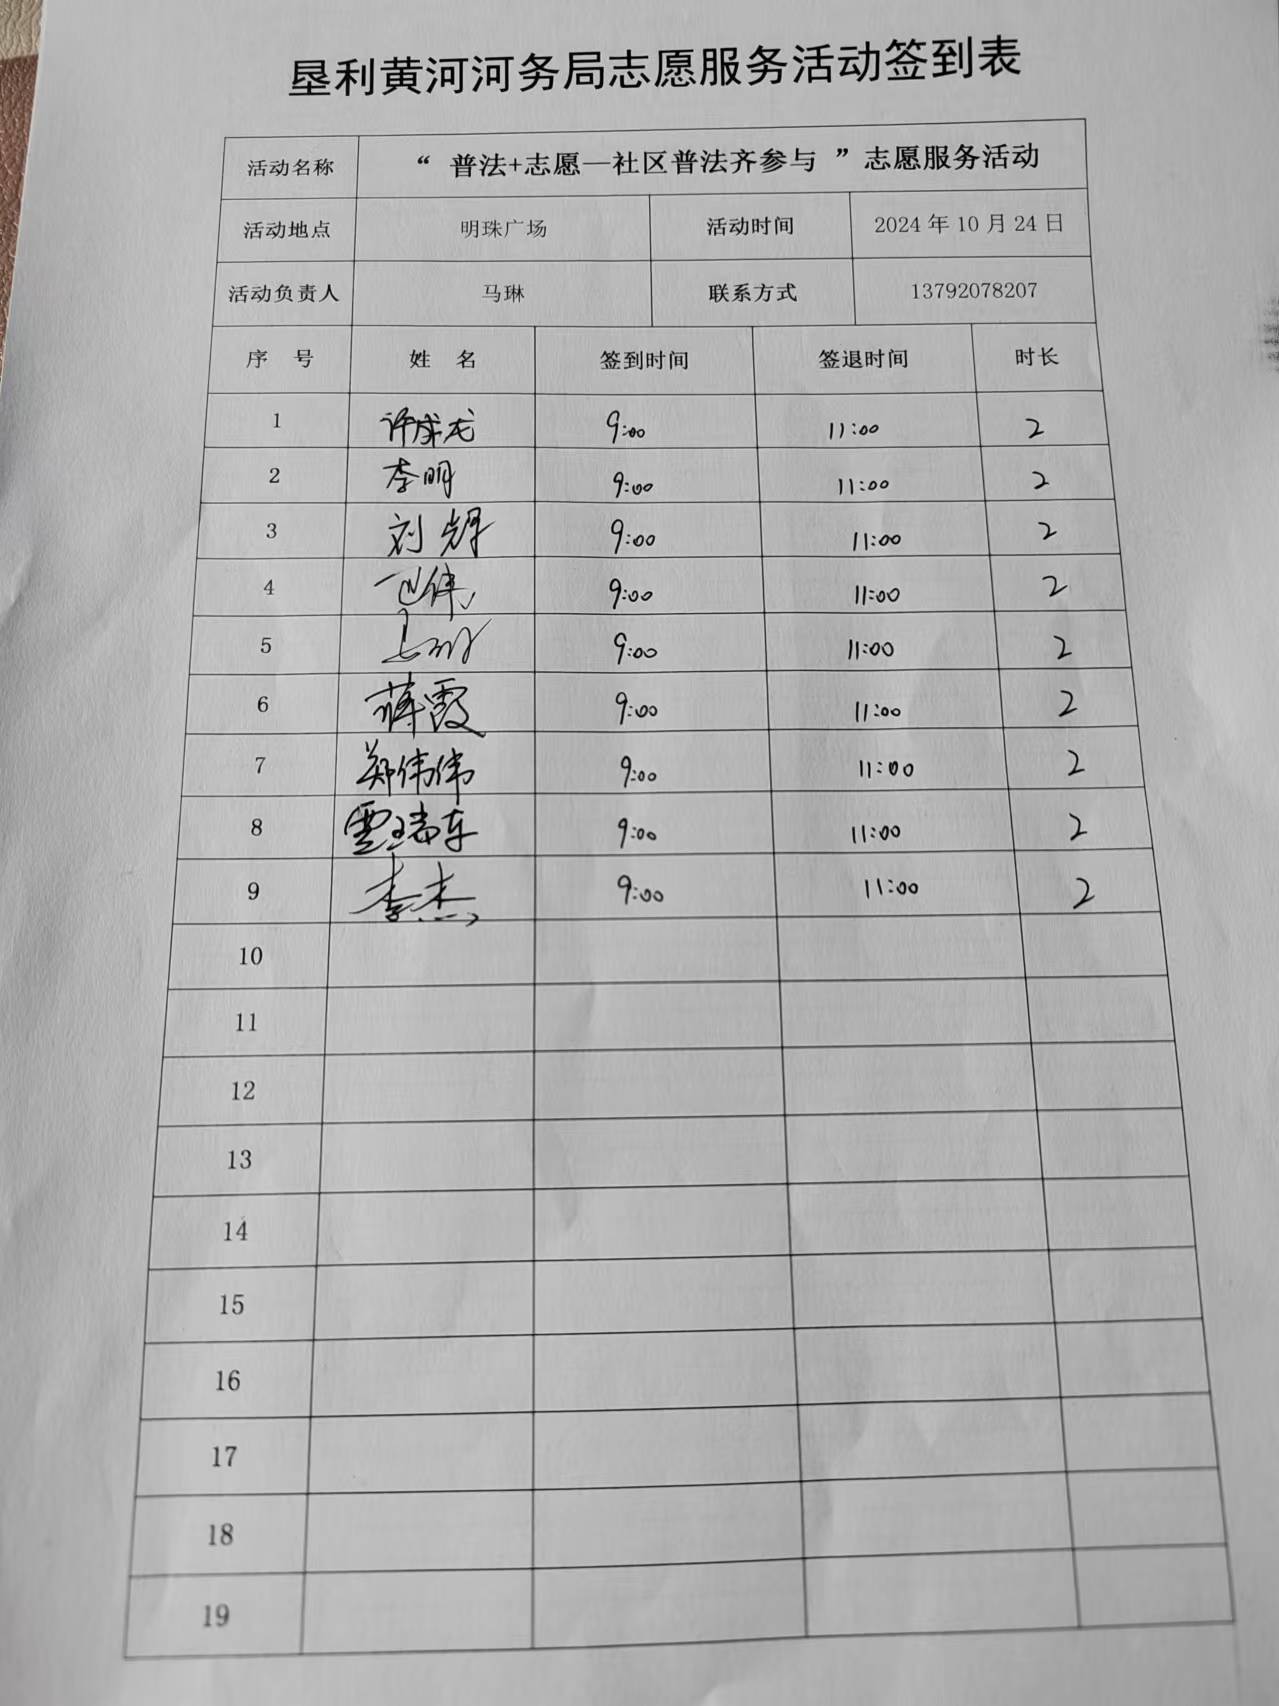 垦利黄河河务局志愿服务活动签到表
活动名称 “ 普法+志愿—社区普法齐参与 ”志愿服务活动
活动地点 明珠广场 活动时间 2024 年 10 月 24 日
活动负责人 马琳 联系方式 13792078207
序 号 姓 名 签到时间 签退时间 时长
1 许成龙 9:00 11:00 2
2 李明 9:00 11:00 2
3 刘 9:00 11:00 2
4 伟 9:00 11:00 2
5 马琳 9:00 11:00 2
6 蒋霞 9:00 11:00 2
7 郑伟伟 9:00 11:00 2
8 瑞东 9:00 11:00 2
9 李杰 9:00 11:00 2
10
11
12
13
14
15
16
17
18
19